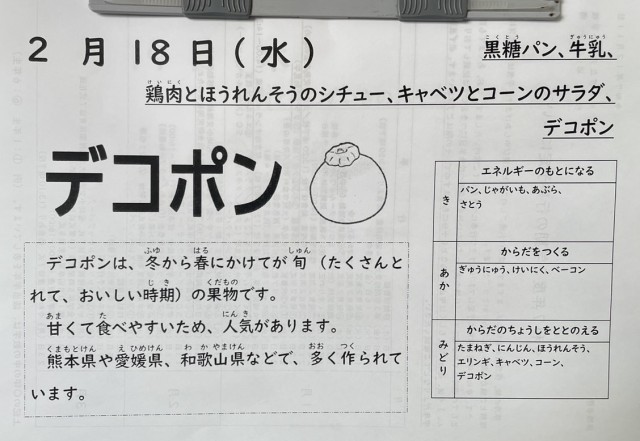 2月18日(水)
黒糖パン、牛乳、
鶏肉とほうれんそうのシチュー、キャベツとコーンのサラダ、
デコポン
デコポン
デコポンは、冬から春にかけてが旬（たくさんと
れて、おいしい時期）の果物です。
甘くて食べやすいため、人気があります。
熊本県や愛媛県、和歌山県などで、多く作られて
います。
き
エネルギーのもとになる
パン、じゃがいも、あぶら、
さとう
あか
からだをつくる
ぎゅうにゅう、けいにく、ベーコン
みどり
からだのちょうしをととのえる
たまねぎ、にんじん、ほうれんそう、
エリンギ、キャベツ、コーン、
デコポン